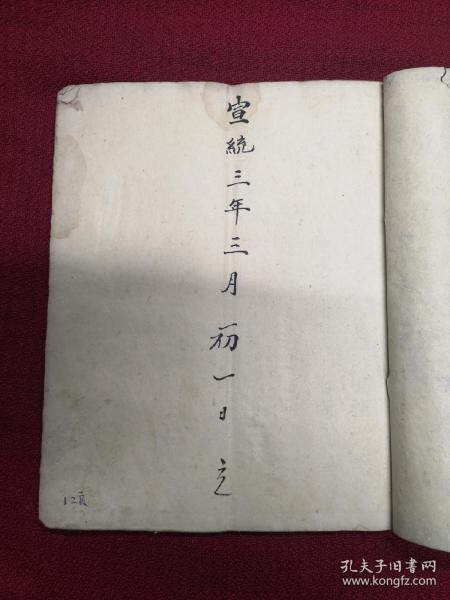 宣統三年三月初一日立
12頁
孔夫子旧书网
www.kongfz.com